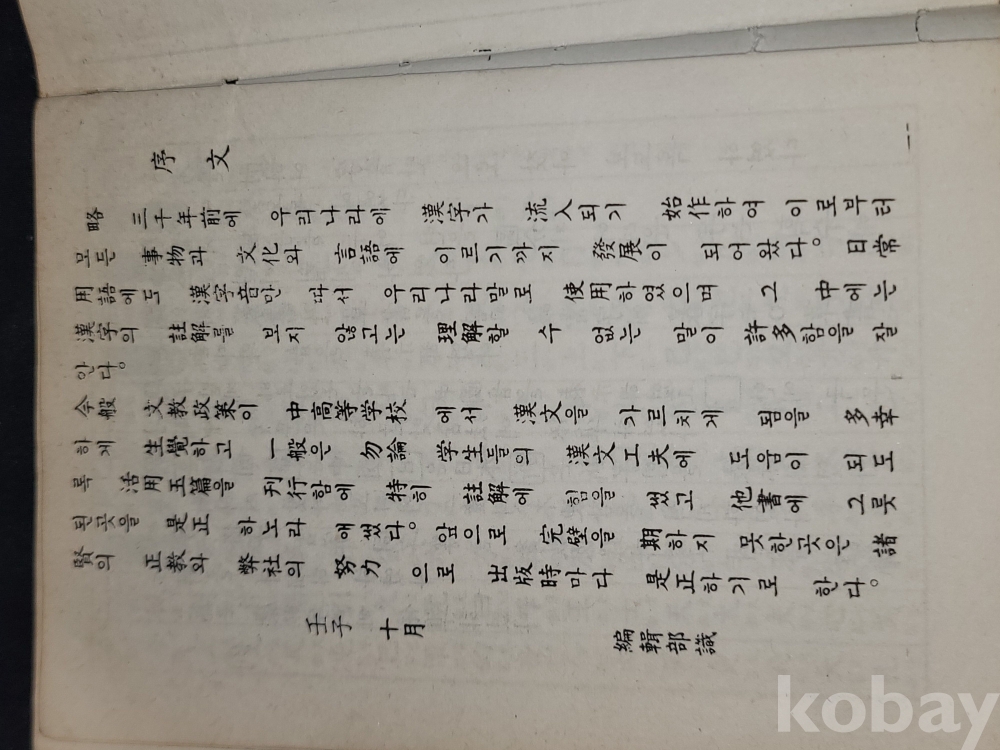 序 文
略 三千年前에 우리나라에 漢字가 流入되기 始作하여 이로부터
모든 事物과 文化와 言語에 이르기까지 發展이 되어왔다。 日常
用語에도 漢字音만 따서 우리나라말로 使用하였으며 그 中에는
漢字의 註解를 보지 않고는 理解할 수 없는 말이 許多함을 잘
안다。
今般 文教政策이 中高等学校 에서 漢文을 가르치게 됨을 多幸
하게 生覺하고 一般은 勿論 学生들의 漢文工夫에 도움이 되도
록 活用玉篇을 刊行함에 特히 註解에 힘을 썼고 他書에 그릇
된곳을 是正 하노라 애썼다。 앞으로 完璧을 期하지 못한곳은 諸
賢의 正教와 弊社의 努力 으로 出版時마다 是正하기로 한다。
壬子 十月
編輯部識
kobay